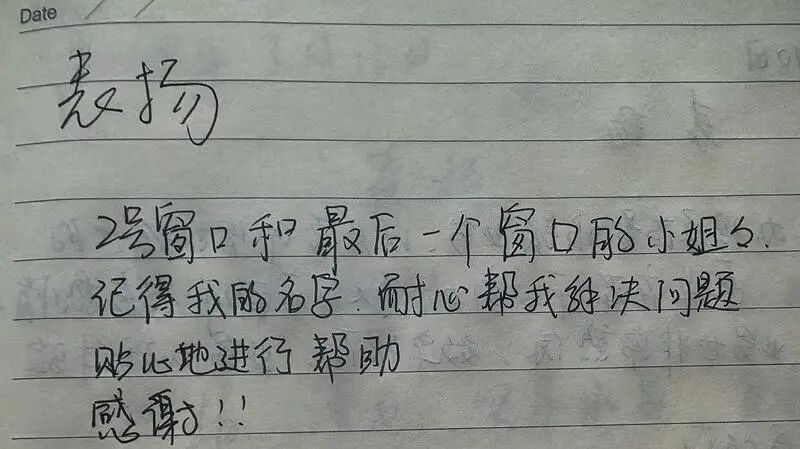 Date / /
表扬
2号窗口和最后一个窗口的小姐々.
记得我的名字.耐心帮我解决问题
贴心地进行帮助
感谢!!